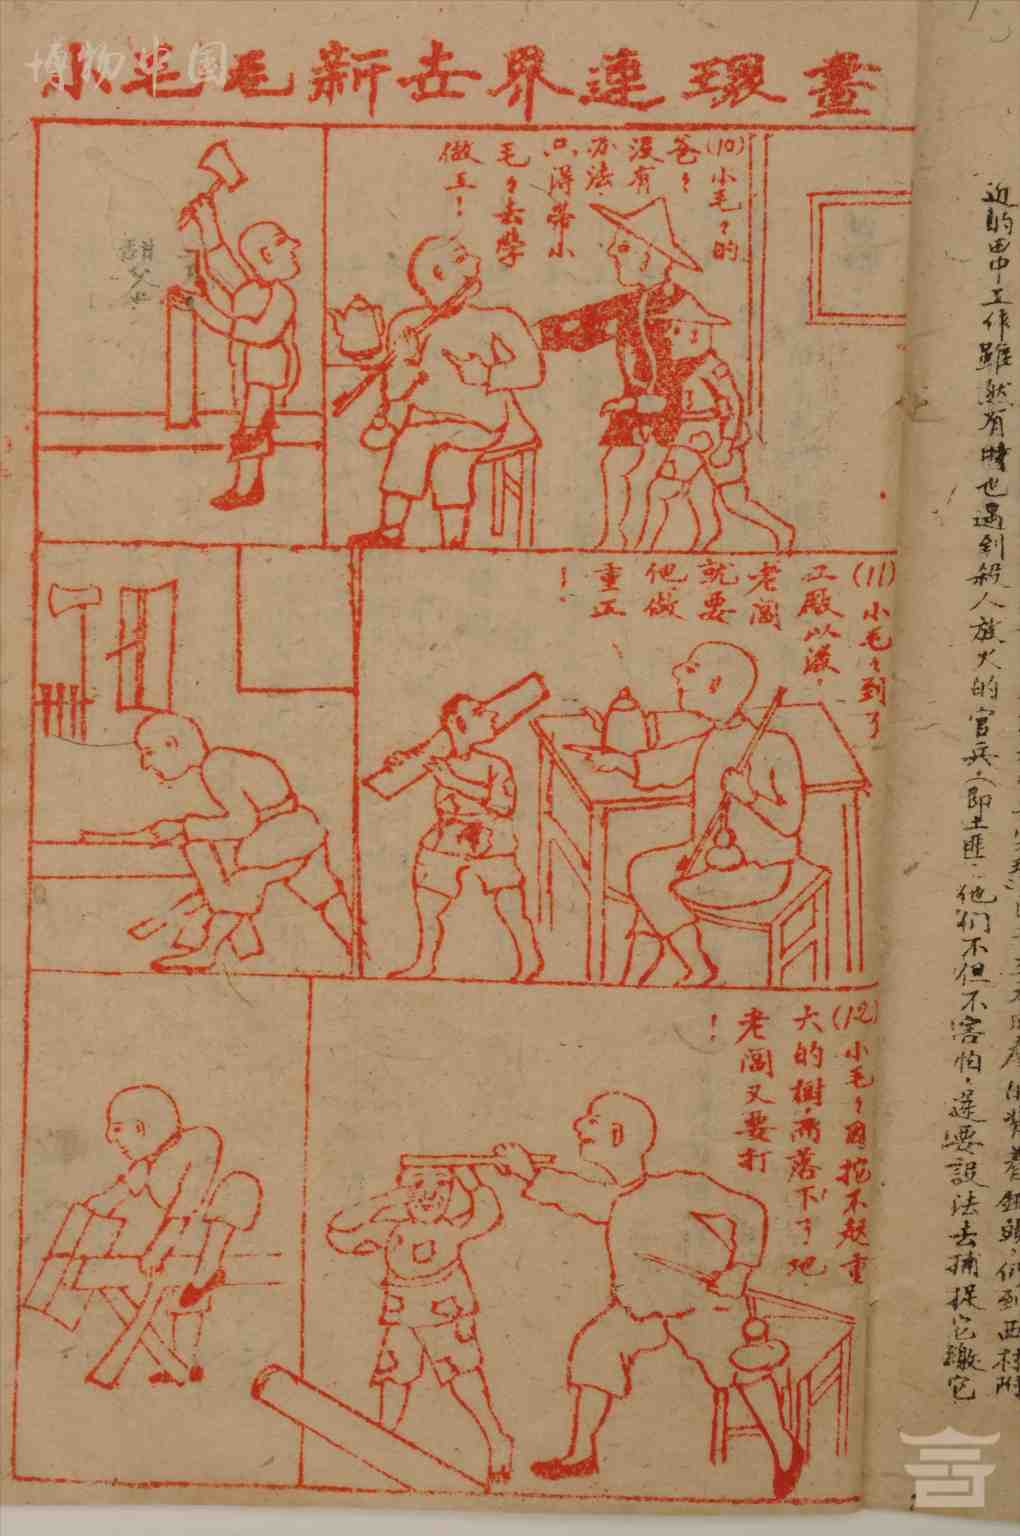 畫環連界世新毛毛小
博物中國
(10)小毛々的
爸々
没有
办法
只得帶小
毛々去學
做工！
(11)小毛々到了
工廠以後，
老闆
就要
他做
重工
！
(12)小毛々因拖不起重
大的樹，而落下了地
老闆又要打
！
近的甲中工作雖然有時也遇到殺人放火的官兵，(即土匪)他们不但不害怕，還要設法去捕捉它繳它